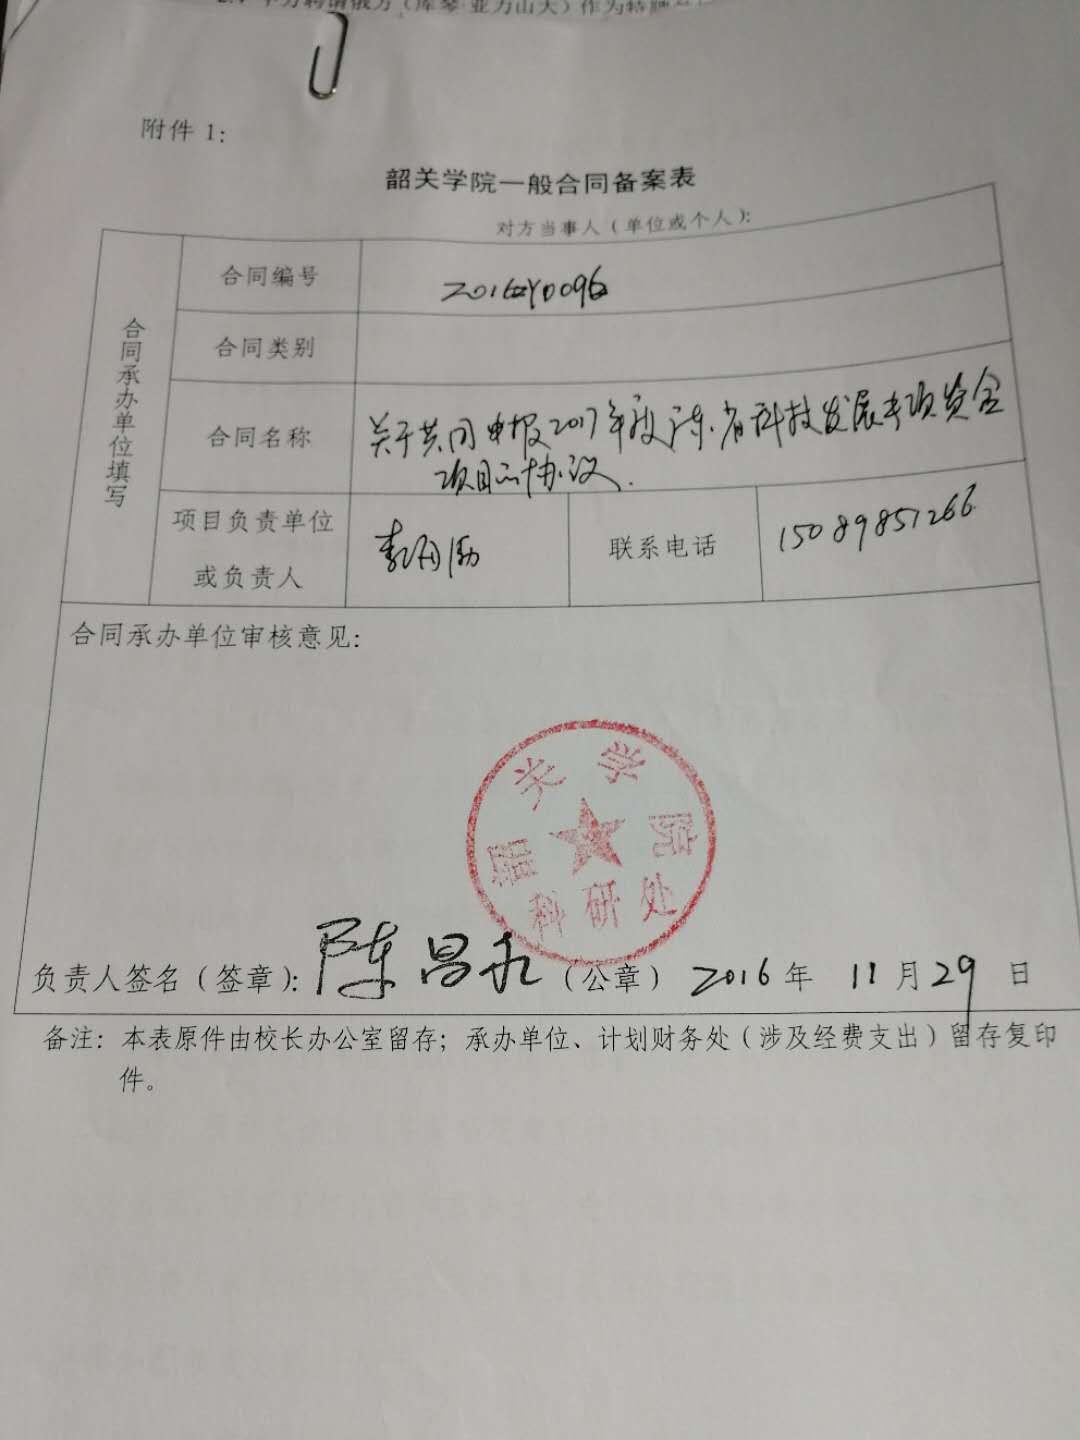 附件 1：
韶关学院一般合同备案表
对方当事人（单位或个人）：
合同承办单位填写
合同编号
合同类别
合同名称 关于共同申报2017年度广东省科技发展专项资金
项目的协议.
项目负责单位
或负责人
联系电话 15089851266
合同承办单位审核意见：
韶关学院
科研处
负责人签名（签章）：陈昌 （公章） 2016 年 11 月 29 日
备注：本表原件由校长办公室留存；承办单位、计划财务处（涉及经费支出）留存复印
件。